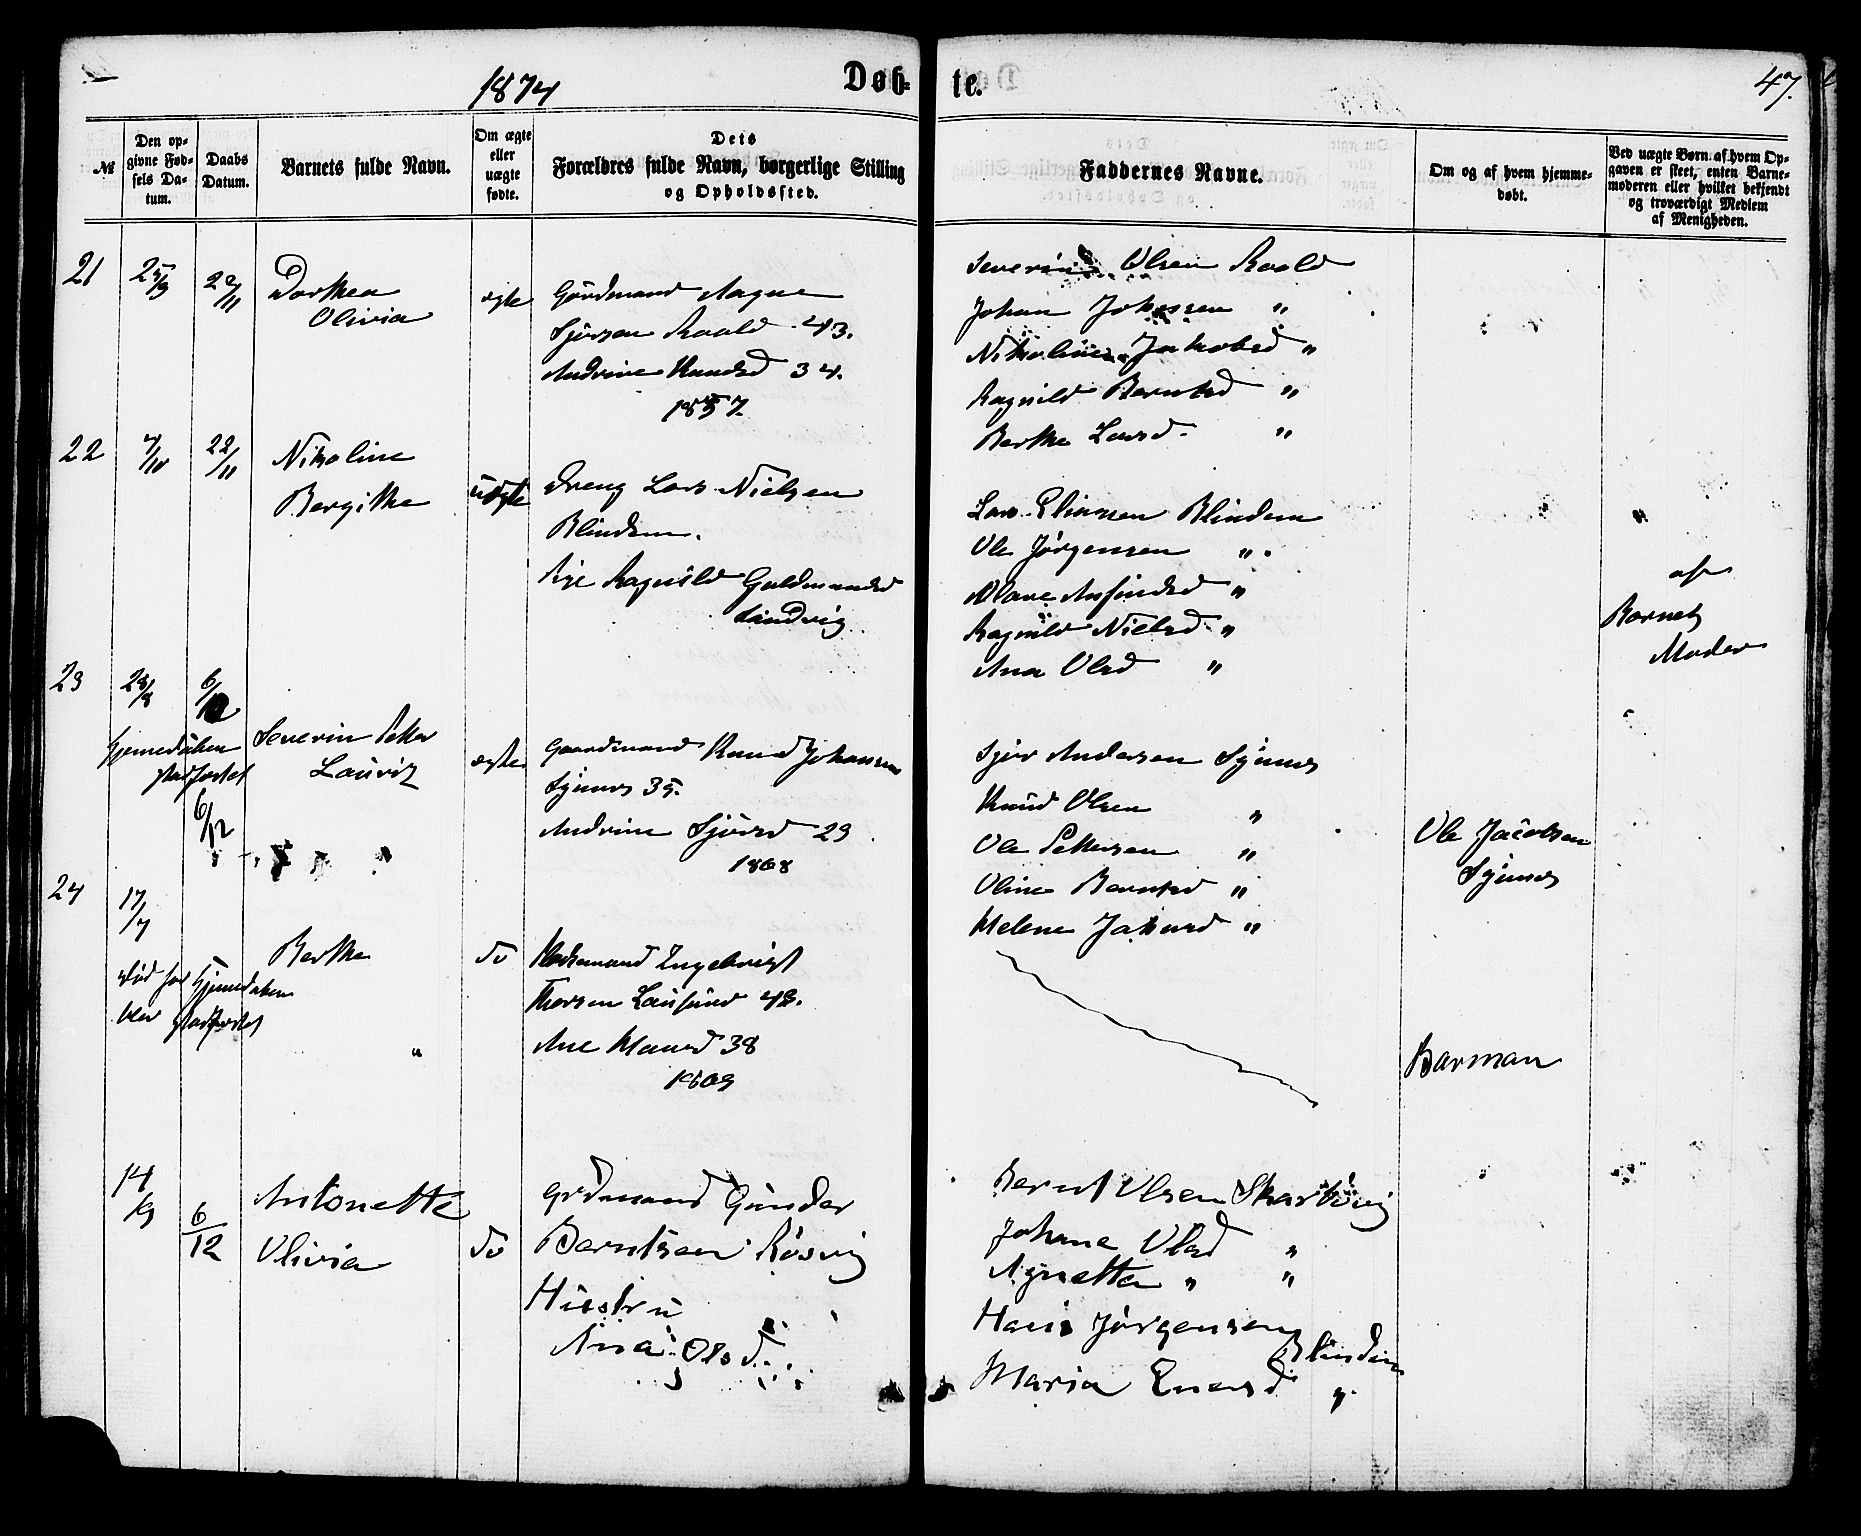 1874
Døb-
te.
47.
№
Den op-
givne Fød-
sels Da-
tum.
Daabs
Datum.
Barnets fulde Navn.
Om ægte
eller
uægte
fødte.
Dets
Forældres fulde Navn, borgerlige Stilling
og Opholdssted.
Faddernes Navne.
Om og af hvem hjemme-
døbt.
Ved uægte Børn, af hvem Op-
gaven er skeet, enten Barne-
moderen eller hvilket bekjendt
og troværdigt Medlem
af Menigheden.
21
25/9
22/11
Dorthea
Olivia
ægte
Gårdmand Aagne
Sjørsen Roald 43.
Andrine Knudsd 34.
1857.
Severin Olsen Roald
Johan Johnsen "
Nikoline Jakobsd "
Ragnild Berntsd "
Berthe Larsd. "
22
4/10
22/11
Nikoline
Bergithe
uægte
Dreng Lars Nielsen
Blindem.
Pige Ragnild Guldmandsd
Sandvig
Lars Eliassen Blindem
Ole Jørgensen "
Olave Anfindsd "
Ragnild Nielsd "
Ana Olsd "
"
af
Barnets
Moder
23
28/8
6/12
Hjemedåben
stadfæstet
6/12
Severin Petter
Lauritz
ægte
Gaardmand Knud Johansen
Synnes 35.
Andrine Sjørsd 29
1868
Sjur Andersen Synnes
Knud Olsen "
Ole Pettersen "
Oline Berntsd "
Helene Jakobsd "
Ole Jacobsen
Synnes
24
17/7
død før Hjemedåben
blev stadfæstet
Berthe
"
do
Huusmand Ingebrigt
Thorsen Lausund 42.
Ane Knudsd 38
1869
Barman
14/9
6/12
Antonette
Olivia
do
Grdmand Gunder
Berntsen Røsvig
Hustru
Ana Olsd.
Bernt Olsen Skarbövig
Johane Olsd "
Agnette " "
Hans Jørgensen
Blindem
Maria Enersd "